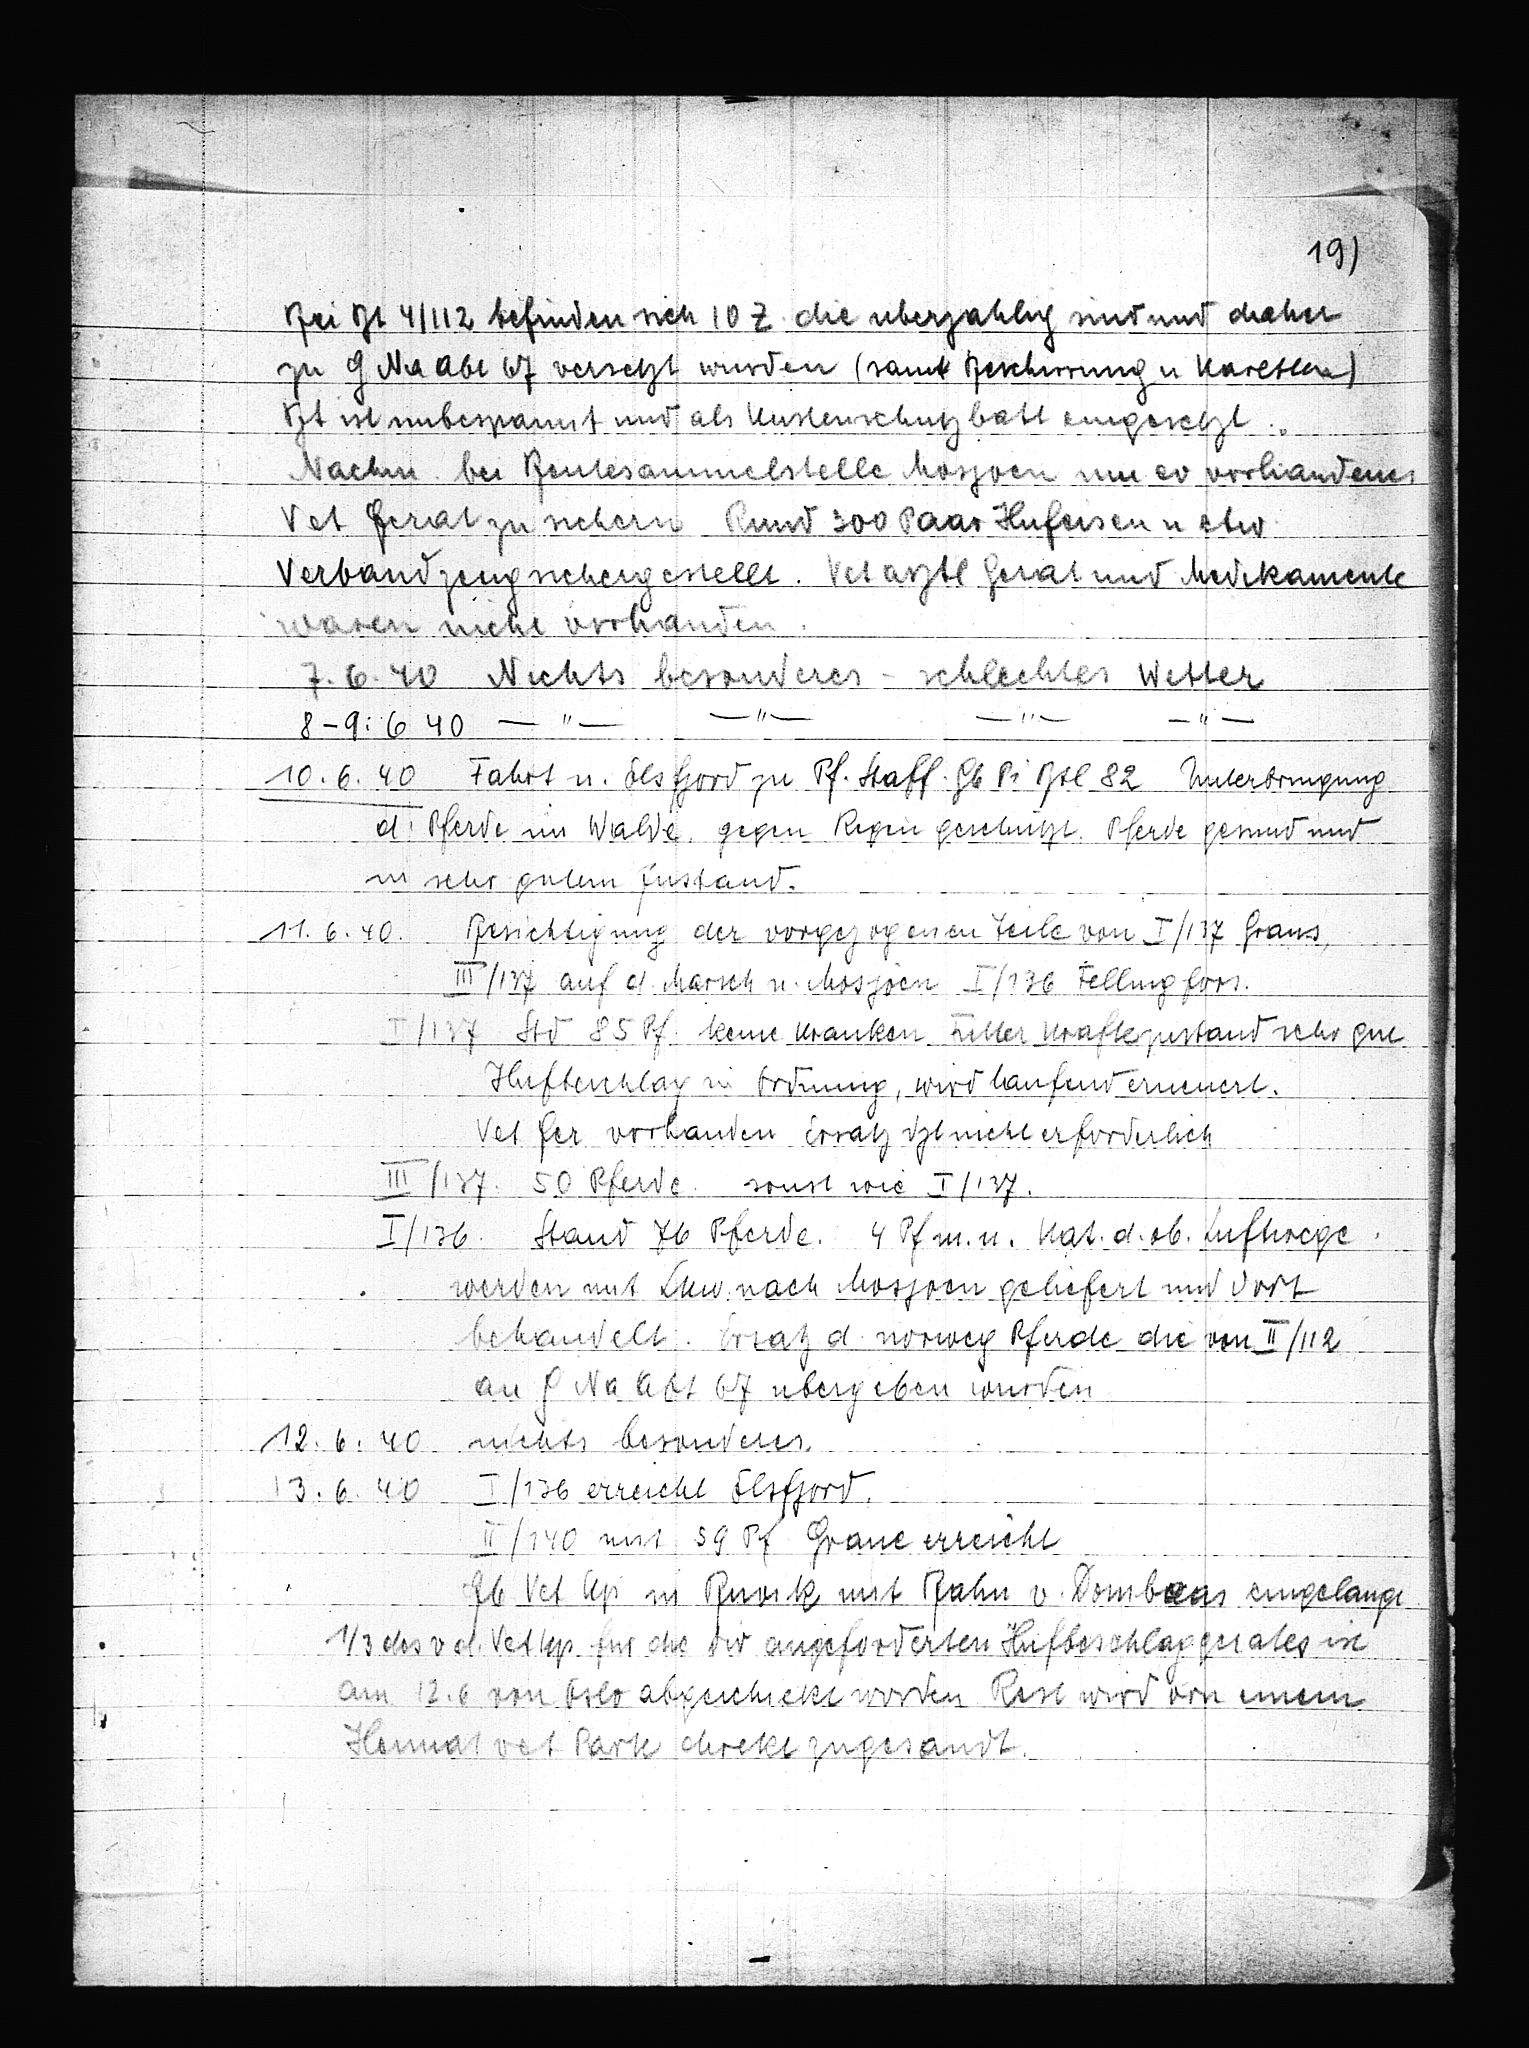 19)
Bei Bt 4/112 befinden sich 10 Z. die uberzahlig sind und daher
zu G Na Abt 67 versetzt wurden (samt Beschirrung u Karetten)
Bt ist unbespannt und als Küstenschutzbatt eingesetzt.
Nachm. bei Beutesammelstelle Mosjoen um ev vorhandenes
Vet Gerät zu sichern Rund 300 Paar Hufeisen u etw.
Verbandzeug sichergestellt. Vet ärztl Gerät und Medikamente
waren nicht vorhanden.
7.6.40 Nichts besonderes - schlechtes Wetter
8-9.6 40 — " — — " — — " — — " —
10.6.40 Fahrt n. Elsfjord zu Pf. Staff. Gb Pi Btl 82 Unterbringung
d. Pferde im Walde, gegen Regen geschützt. Pferde gesund und
in sehr gutem Zustand.
11.6.40. Besichtigung der vorgezogenen Teile von I/137 Grane,
III/137 auf d. Marsch n. Mosjoen I/136 Fellingfors.
I/137 Std 85 Pf. keine Kranken Futter Kraftezustand sehr gut
Hufbeschlag in Ordnung, wird laufend erneuert.
Vet Ger vorhanden Ersatz dzt nicht erforderlich
III/137. 50 Pferde. sonst wie I/137.
I/136. Stand 76 Pferde. 4 Pf m. u. Kat. d. ob. Luftwege.
werden mit Lkw. nach Mosjoen geliefert und dort
behandelt. Ersatz d. norweg Pferde die von II/112
an G Na Abt 67 ubergeben wurden
12.6.40 nichts besonderes.
13.6.40 I/136 erreicht Elsfjord.
II/140 mit 59 Pf Grane erreicht
Gb Vet Kp in mit Bahn v. Dombaas eingelangt
1/3 des v d. Vet Kp. fur die Div angeforderten Hufbeschlaggerätes ist
am 12.6 von Oslo abgeschickt worden Rest wird von einem
Heimat vet Park direkt zugesandt.